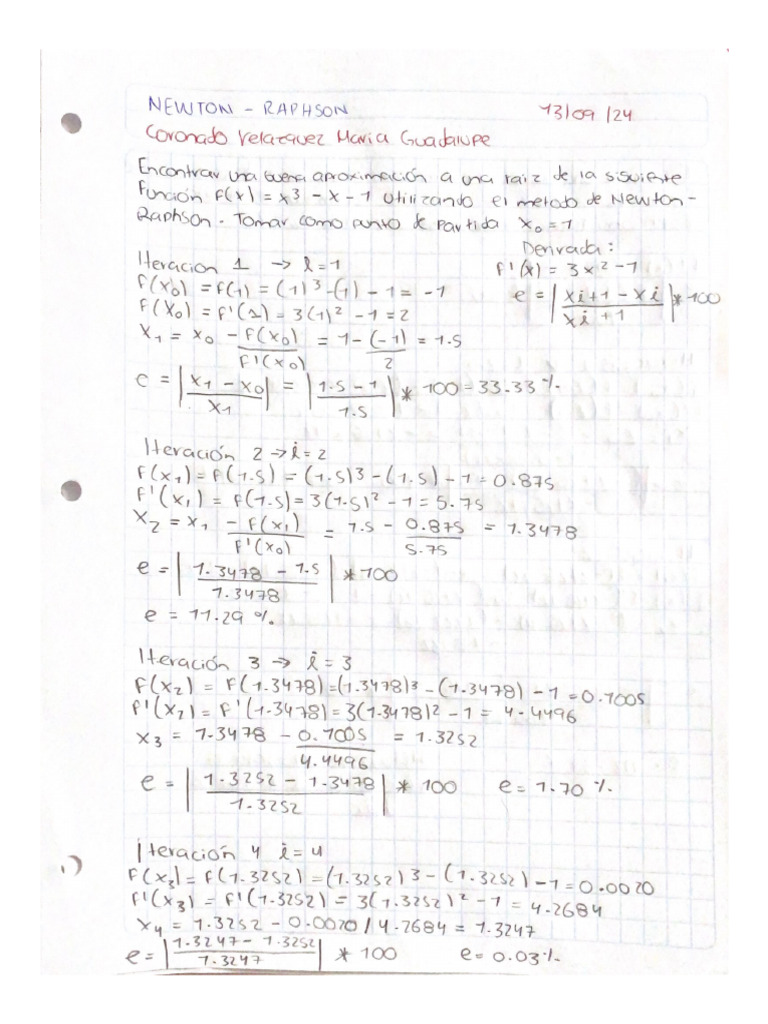 NEWTON - RAPHSON 13/09/24
Coronado Velazquez Maria Guadalupe
Encontrar una buena aproximación a una raiz de la siguiente
Función f(x) = x³ - x - 1 utilizando el metodo de Newton-
Raphson. Tomar como punto de partida x₀ = 1
Derivada:
f'(x) = 3x² - 1
e = |(xi+1 - xi)/(xi+1)| * 100
Iteracion 1 → i = 1
f(x₀) = f(1) = (1)³ - (1) - 1 = -1
f(x₀) = f'(1) = 3(1)² - 1 = 2
x₁ = x₀ - f(x₀)/f'(x₀) = 1 - (-1)/2 = 1.5
e = |(x₁ - x₀)/x₁| = |(1.5 - 1)/1.5| * 100 = 33.33 %
Iteración 2 → i = 2
f(x₁) = f(1.5) = (1.5)³ - (1.5) - 1 = 0.875
f'(x₁) = f(1.5) = 3(1.5)² - 1 = 5.75
x₂ = x₁ - f(x₁)/f'(x₀) = 1.5 - 0.875/5.75 = 1.3478
e = |(1.3478 - 1.5)/1.3478| * 100
e = 11.29 %
Iteración 3 → i = 3
f(x₂) = f(1.3478) = (1.3478)³ - (1.3478) - 1 = 0.1005
f'(x₂) = f'(1.3478) = 3(1.3478)² - 1 = 4.4496
x₃ = 1.3478 - 0.1005/4.4496 = 1.3252
e = |(1.3252 - 1.3478)/1.3252| * 100 e = 1.70 %
Iteración 4 i = 4
f(x₃) = f(1.3252) = (1.3252)³ - (1.3252) - 1 = 0.0020
f'(x₃) = f'(1.3252) = 3(1.3252)² - 1 = 4.2684
x₄ = 1.3252 - 0.0020 / 4.2684 = 1.3247
e = |(1.3247 - 1.3252)/1.3247| * 100 e = 0.03 %